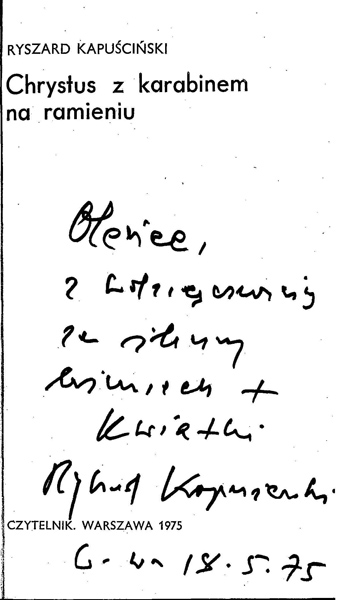 RYSZARD KAPUŚCIŃSKI
Chrystus z karabinem
na ramieniu
Olenice,
z wdzięcznością
za
uśmiech +
Kwiatki
Ryszard Kapuściński
CZYTELNIK. WARSZAWA 1975
W-wa 18.5.75